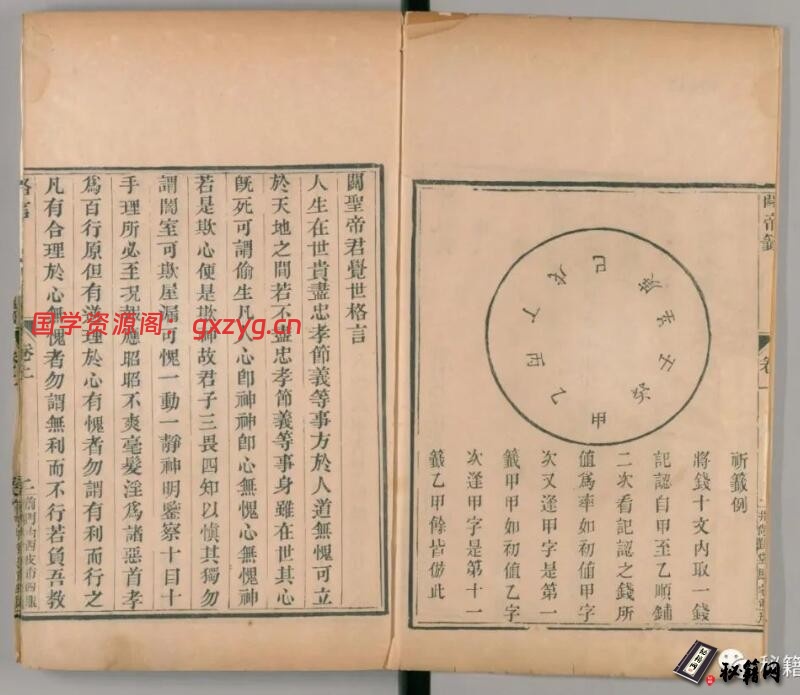 關帝籤
卷一
甲
乙
丙
丁
戊
己
庚
辛
壬
癸
祈籤例
將錢十文內取一錢
記認自甲至乙順鋪
二次看記認之錢所
值爲率如初值甲字
次又逢甲字是第一
籤甲甲如初值乙字
次逢甲字是第十一
籤乙甲餘皆倣此
關聖帝君覺世格言
人生在世貴盡忠孝節義等事方於人道無愧可立
於天地之間若不盡忠孝節義等事身雖在世其心
既死可謂偷生凡人心卽神神卽心無愧心無愧神
若是欺心便是欺神故君子三畏四知以慎其獨勿
謂闇室可欺屋漏可愧一動一靜神明鑒察十目十
手理所必至況報應昭昭不爽毫髮淫爲諸惡首孝
爲百行原但有逆理於心有愧者勿謂有利而行之
凡有合理於心無愧者勿謂無利而不行若負吾教
格言
卷上
二
国学资源阁：gxzyg.cn
秘籍网
秘籍